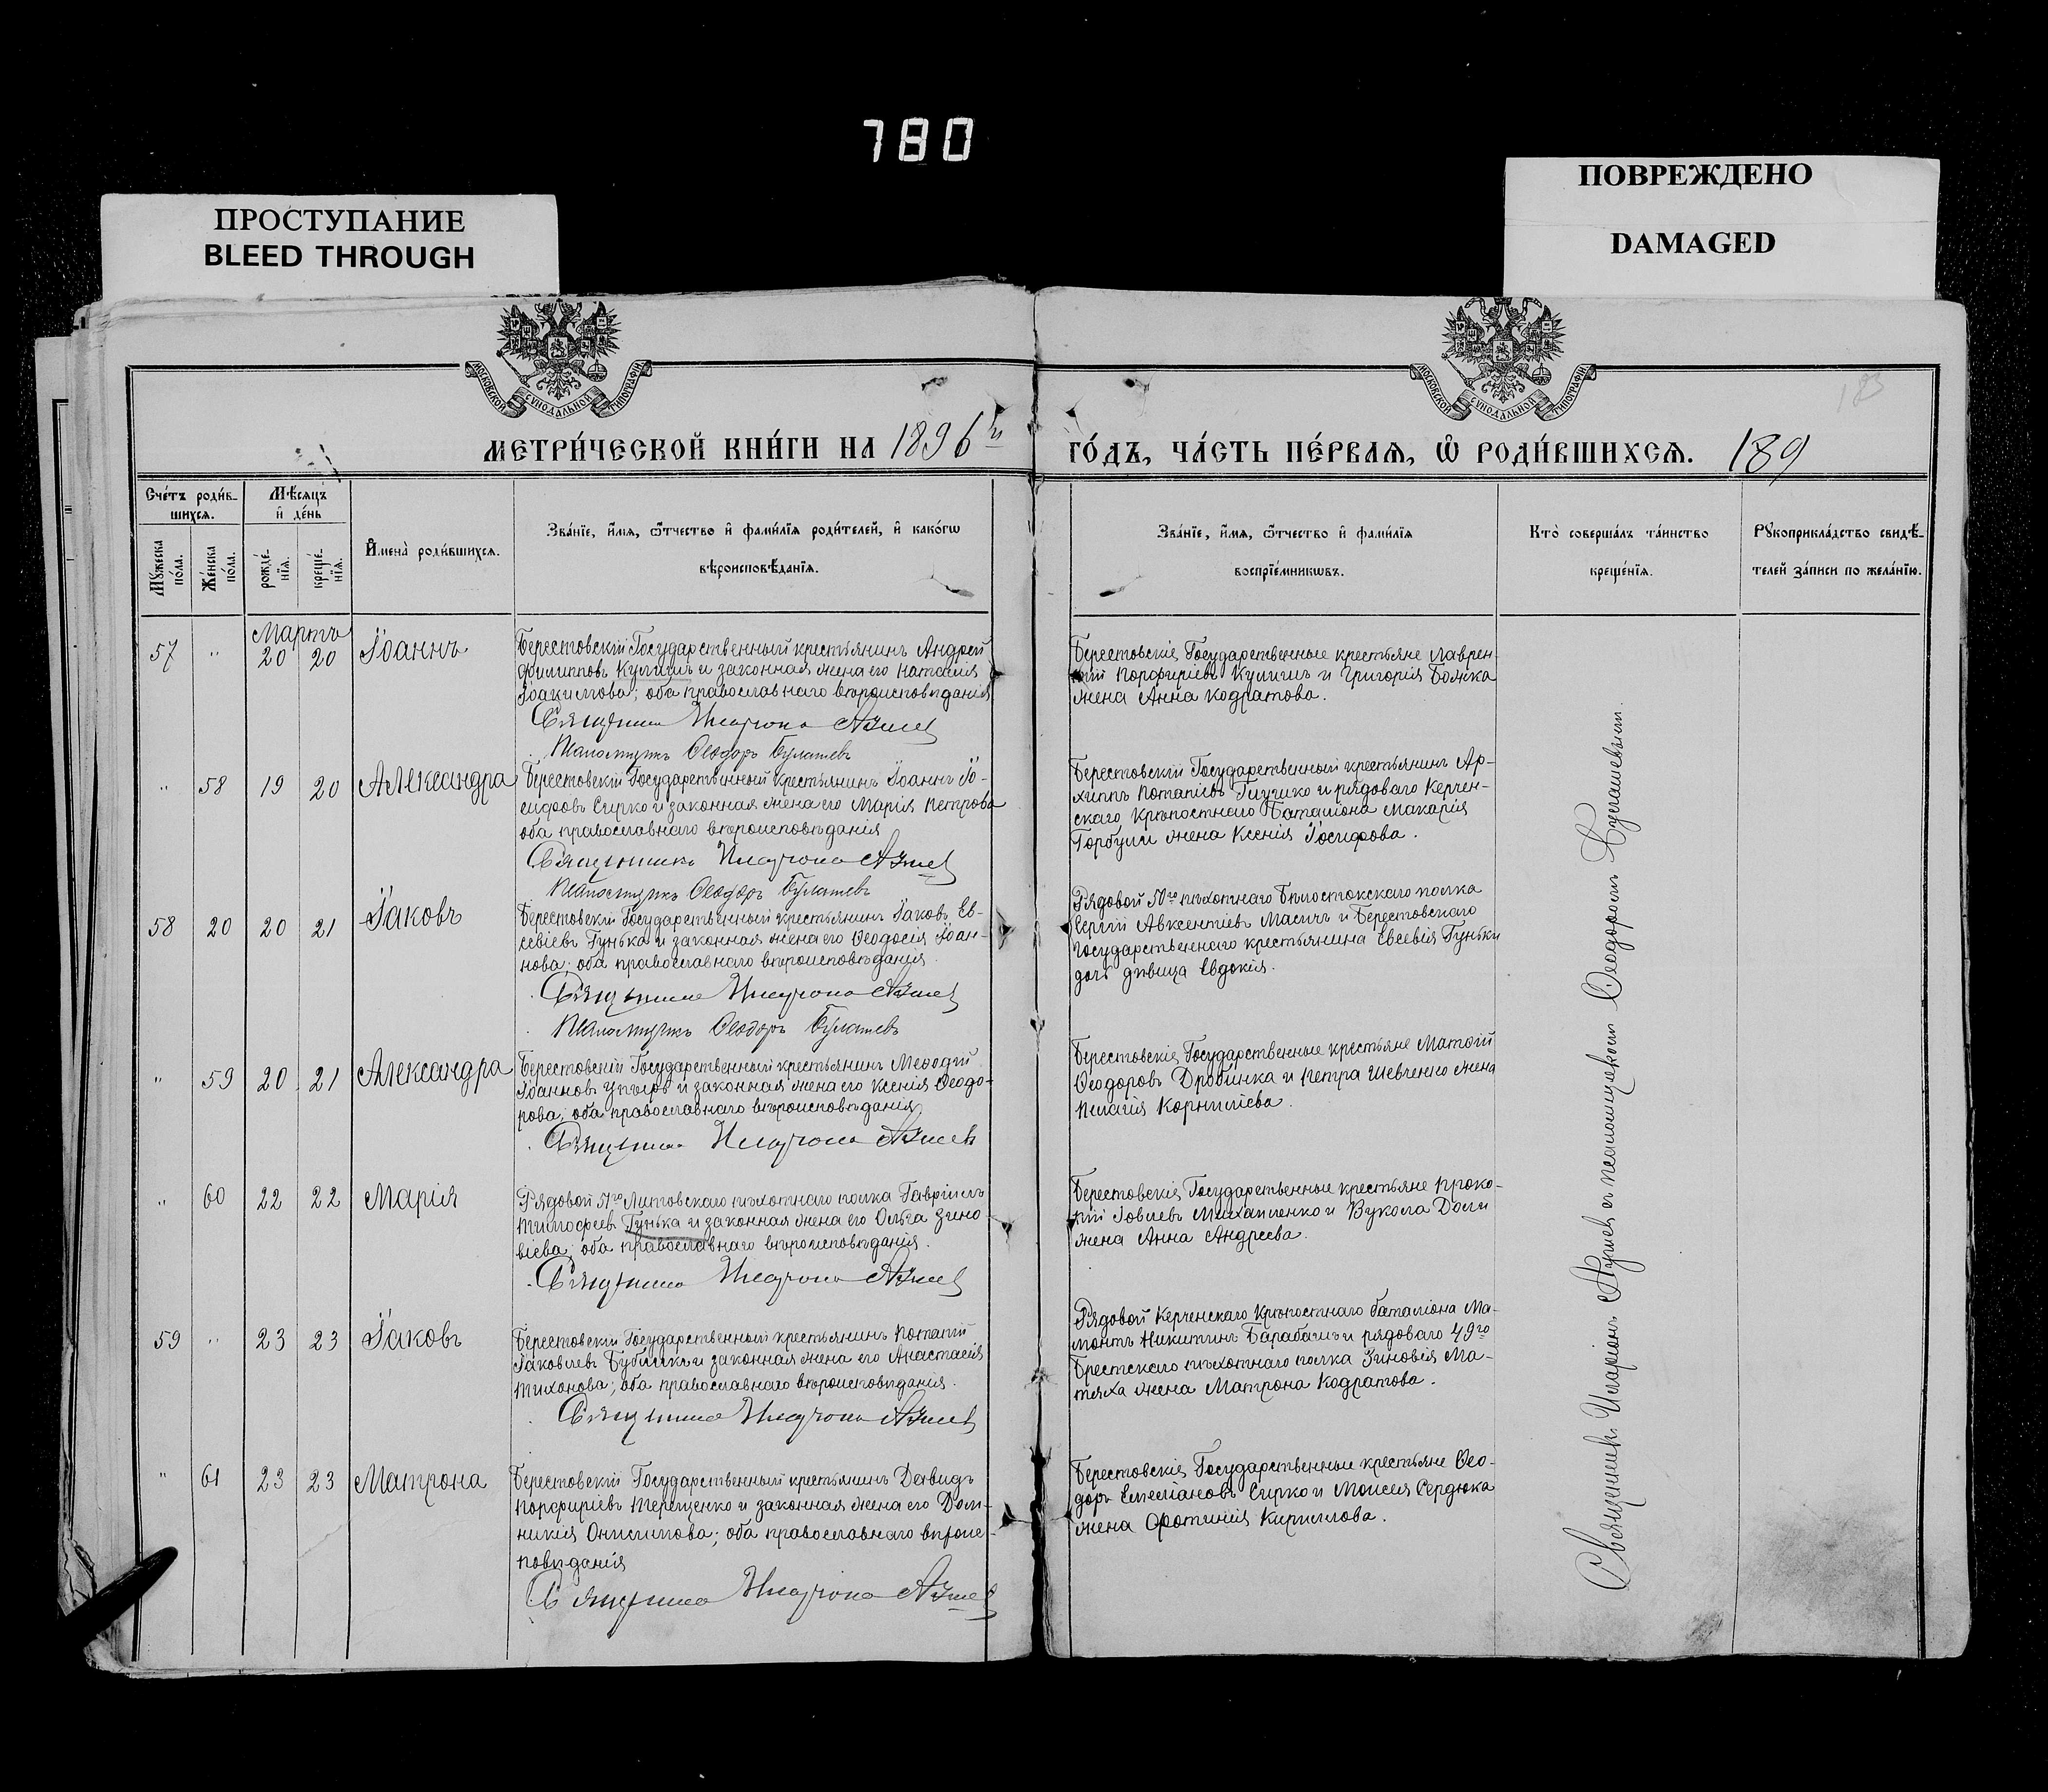 780
ПРОСТУПАНИЕ
BLEED THROUGH
ПОВРЕЖДЕНО
DAMAGED
МОСКОВСКОЙ СѴНОДАЛЬНОЙ ТИПОГРАФІИ
МОСКОВСКОЙ СѴНОДАЛЬНОЙ ТИПОГРАФІИ
183
МЕТРИ́ЧЕСКОЙ КНИ́ГИ НА 1896й
ГО́ДЪ, ЧА́СТЬ ПЕ́РВАѦ, Ѽ РОДИ́ВШИХСѦ. 189
Сче́тъ роди́в-
шихсѧ.
Мꙋжеска по́ла.
Же́нска по́ла.
Мѣ́сѧцъ
и҆ де́нь
рожде́-
нїѧ.
креще́-
нїѧ.
И҆мена̀ роди́вшихсѧ.
Зва́нїе, и҆́мѧ, ѻ҆́тчество и҆ фами́лїѧ роди́телей, и҆ како́гѡ
вѣроисповѣ́данїѧ.
Зва́нїе, и҆́мѧ, ѻ҆́тчество и҆ фами́лїѧ
воспрїе́мникѡвъ.
Кто̀ соверша́лъ та́инство
креще́нїѧ.
Рꙋкоприкла́дство свидѣ́-
телей за́писи по жела́нїю.
Мартъ
57 " 20 20 Іоаннъ
Берестовскій Государственный крестьянинъ Андрей
Филипповъ Кулишъ и законная жена его Наталія
Іоакимова; оба православнаго вѣроисповѣданія
Священникъ Иларіонъ
Псаломщикъ Ѳеодоръ
Берестовскіе Государственные крестьяне Лаврен-
тій Порфиріевъ Кулишъ и Григорія Божка
жена Анна Кодратова.
" 58 19 20 Александра
Берестовскій Государственный крестьянинъ Іоаннъ Іо-
сифовъ Сирко и законная жена его Марія Петрова
оба православнаго вѣроисповѣданія
Священникъ Иларіонъ
Псаломщикъ Ѳеодоръ
Берестовскій Государственный крестьянинъ Ар-
хиппъ Потапіевъ Глушко и рядоваго Керчен-
скаго Крѣпостнаго Баталіона Макарія
Горбули жена Ксенія Іосифова.
58 20 20 21 Іаковъ
Берестовскій Государственный крестьянинъ Іаковъ Ев-
севіевъ Гунька и законная жена его Ѳеодосія Іоан-
нова; оба православнаго вѣроисповѣданія
Священникъ Иларіонъ
Псаломщикъ Ѳеодоръ
Рядовой 50го пѣхотнаго Бѣлостокскаго полка
Сергій Авксентіевъ Масичъ и Берестовскаго
Государственнаго крестьянина Евсевія Гуньки
дочь дѣвица Евдокія.
" 59 20 21 Александра
Берестовскій Государственный крестьянинъ Меѳодій
Іоанновъ Упырь и законная жена его Ксенія Ѳеодо-
рова; оба православнаго вѣроисповѣданія
Священникъ Иларіонъ
Берестовскіе Государственные крестьяне Матѳій
Ѳеодоровъ Дробинка и Петра Шевченко жена
Пелагія Корниліева.
" 60 22 22 Марія
Рядовой 51го Литовскаго пѣхотнаго полка Гавріилъ
Тимофеевъ Гунька и законная жена его Ольга Зино-
віева; оба православнаго вѣроисповѣданія.
Священникъ Иларіонъ
Берестовскіе Государственные крестьяне Проко-
пій Іовлевъ Михайленко и Вукола Доли
жена Анна Андреева.
59 " 23 23 Іаковъ
Берестовскій Государственный крестьянинъ Потапій
Іаковлевъ Бубликъ и законная жена его Анастасія
Тихонова; оба православнаго вѣроисповѣданія.
Священникъ Иларіонъ
Рядовой Керченскаго Крѣпостнаго баталіона Ма-
монтъ Никитинъ Барабашъ и рядоваго 49го
Брестскаго пѣхотнаго полка Зиновія Ма-
тяха жена Матрона Кодратова.
" 61 23 23 Матрона
Берестовскій Государственный крестьянинъ Давидъ
Порфиріевъ Терещенко и законная жена его Дом-
никія Онисимова; оба православнаго вѣроис-
повѣданія
Священникъ Иларіонъ
Берестовскіе Государственные крестьяне Ѳео-
доръ Емеліановъ Сирко и Моисея Сердюка
жена Фотинія Кириллова.
Священникъ Иларіонъ съ псаломщикомъ Ѳеодоромъ